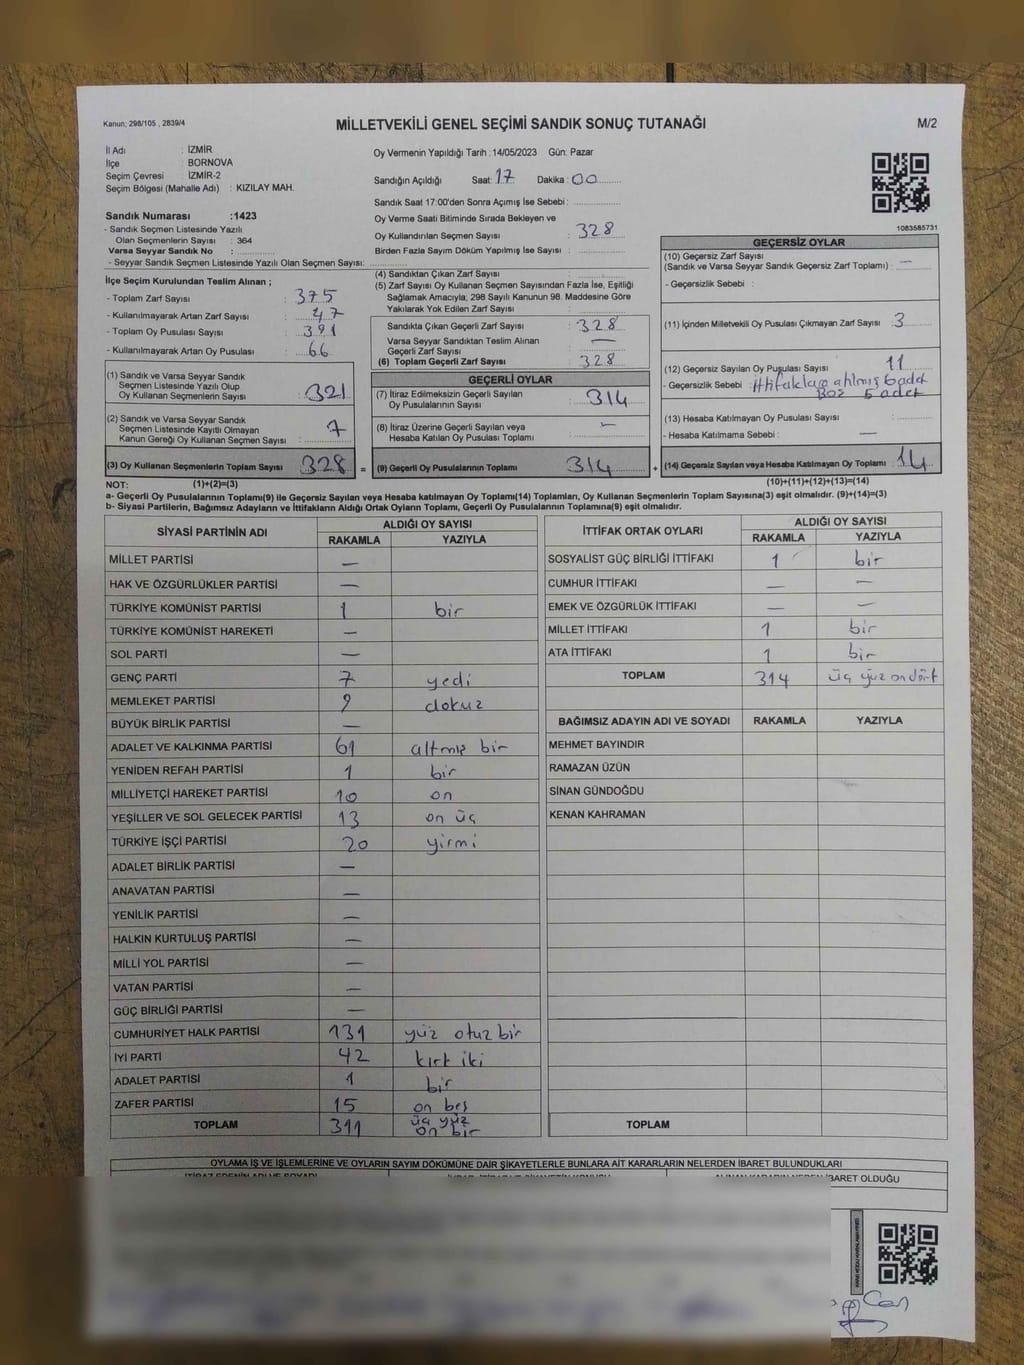 Kanun; 298/105 , 2839/4
MİLLETVEKİLİ GENEL SEÇİMİ SANDIK SONUÇ TUTANAĞI
M/2
İl Adı : İZMİR
İlçe : BORNOVA
Seçim Çevresi : İZMİR-2
Seçim Bölgesi (Mahalle Adı) : KIZILAY MAH.
Sandık Numarası :1423
- Sandık Seçmen Listesinde Yazılı
Olan Seçmenlerin Sayısı : 364
Varsa Seyyar Sandık No :
- Seyyar Sandık Seçmen Listesinde Yazılı Olan Seçmen Sayısı:
Oy Vermenin Yapıldığı Tarih : 14/05/2023 Gün: Pazar
Sandığın Açıldığı Saat: 17 Dakika : 00
Sandık Saat 17:00'den Sonra Açımış İse Sebebi :
Oy Verme Saati Bitiminde Sırada Bekleyen ve
Oy Kullandırılan Seçmen Sayısı : 328
Birden Fazla Sayım Döküm Yapılmış İse Sayısı :
1083585731
İlçe Seçim Kurulundan Teslim Alınan ;
- Toplam Zarf Sayısı : 375
- Kullanılmayarak Artan Zarf Sayısı : 47
- Toplam Oy Pusulası Sayısı : 391
- Kullanılmayarak Artan Oy Pusulası : 66
(1) Sandık ve Varsa Seyyar Sandık
Seçmen Listesinde Yazılı Olup
Oy Kullanan Seçmenlerin Sayısı : 321
(2) Sandık ve Varsa Seyyar Sandık
Seçmen Listesinde Kayıtlı Olmayan
Kanun Gereği Oy Kullanan Seçmen Sayısı : 7
(3) Oy Kullanan Seçmenlerin Toplam Sayısı 328 =
(4) Sandıktan Çıkan Zarf Sayısı :
(5) Zarf Sayısı Oy Kullanan Seçmen Sayısından Fazla İse, Eşitliği
Sağlamak Amacıyla, 298 Sayılı Kanunun 98. Maddesine Göre
Yakılarak Yok Edilen Zarf Sayısı :
Sandıkta Çıkan Geçerli Zarf Sayısı : 328
Varsa Seyyar Sandıktan Teslim Alınan
Geçerli Zarf Sayısı : —
(6) Toplam Geçerli Zarf Sayısı : 328
GEÇERLİ OYLAR
(7) İtiraz Edilmeksizin Geçerli Sayılan
Oy Pusulalarının Sayısı : 314
(8) İtiraz Üzerine Geçerli Sayılan veya
Hesaba Katılan Oy Pusulası Toplamı : —
(9) Geçerli Oy Pusulalarının Toplamı 314 +
GEÇERSİZ OYLAR
(10) Geçersiz Zarf Sayısı
(Sandık ve Varsa Seyyar Sandık Geçersiz Zarf Toplamı) : —
- Geçersizlik Sebebi :
(11) İçinden Milletvekili Oy Pusulası Çıkmayan Zarf Sayısı : 3
(12) Geçersiz Sayılan Oy Pusulası Sayısı : 11
- Geçersizlik Sebebi : ittifaklara atılmış 6 adet
Boş 5 adet
(13) Hesaba Katılmayan Oy Pusulası Sayısı :
- Hesaba Katılmama Sebebi : —
(14) Geçersiz Sayılan veya Hesaba Katılmayan Oy Toplamı : 14
NOT: (1)+(2)=(3) (10)+(11)+(12)+(13)=(14)
a- Geçerli Oy Pusulalarının Toplamı(9) ile Geçersiz Sayılan veya Hesaba katılmayan Oy Toplamı(14) Toplamları, Oy Kullanan Seçmenlerin Toplam Sayısına(3) eşit olmalıdır. (9)+(14)=(3)
b- Siyasi Partilerin, Bağımsız Adayların ve İttifakların Aldığı Ortak Oyların Toplamı, Geçerli Oy Pusulalarının Toplamına(9) eşit olmalıdır.
SİYASİ PARTİNİN ADI ALDIĞI OY SAYISI
RAKAMLA YAZIYLA
MİLLET PARTİSİ —
HAK VE ÖZGÜRLÜKLER PARTİSİ —
TÜRKİYE KOMÜNİST PARTİSİ 1 bir
TÜRKİYE KOMÜNİST HAREKETİ —
SOL PARTİ —
GENÇ PARTİ 7 yedi
MEMLEKET PARTİSİ 9 dokuz
BÜYÜK BİRLİK PARTİSİ —
ADALET VE KALKINMA PARTİSİ 61 altmış bir
YENİDEN REFAH PARTİSİ 1 bir
MİLLİYETÇİ HAREKET PARTİSİ 10 on
YEŞİLLER VE SOL GELECEK PARTİSİ 13 on üç
TÜRKİYE İŞÇİ PARTİSİ 20 yirmi
ADALET BİRLİK PARTİSİ —
ANAVATAN PARTİSİ —
YENİLİK PARTİSİ —
HALKIN KURTULUŞ PARTİSİ —
MİLLİ YOL PARTİSİ —
VATAN PARTİSİ —
GÜÇ BİRLİĞİ PARTİSİ —
CUMHURİYET HALK PARTİSİ 131 yüz otuz bir
İYİ PARTİ 42 kırk iki
ADALET PARTİSİ 1 bir
ZAFER PARTİSİ 15 on beş
TOPLAM 311 üç yüz
on bir
İTTİFAK ORTAK OYLARI ALDIĞI OY SAYISI
RAKAMLA YAZIYLA
SOSYALİST GÜÇ BİRLİĞİ İTTİFAKI 1 bir
CUMHUR İTTİFAKI — —
EMEK VE ÖZGÜRLÜK İTTİFAKI — —
MİLLET İTTİFAKI 1 bir
ATA İTTİFAKI 1 bir
TOPLAM 314 üç yüz on dört
BAĞIMSIZ ADAYIN ADI VE SOYADI RAKAMLA YAZIYLA
MEHMET BAYINDIR
RAMAZAN ÜZÜN
SİNAN GÜNDOĞDU
KENAN KAHRAMAN
TOPLAM
OYLAMA İŞ VE İŞLEMLERİNE VE OYLARIN SAYIM DÖKÜMÜNE DAİR ŞİKAYETLERLE BUNLARA AİT KARARLARIN NELERDEN İBARET BULUNDUKLARI
İBARET OLDUĞU